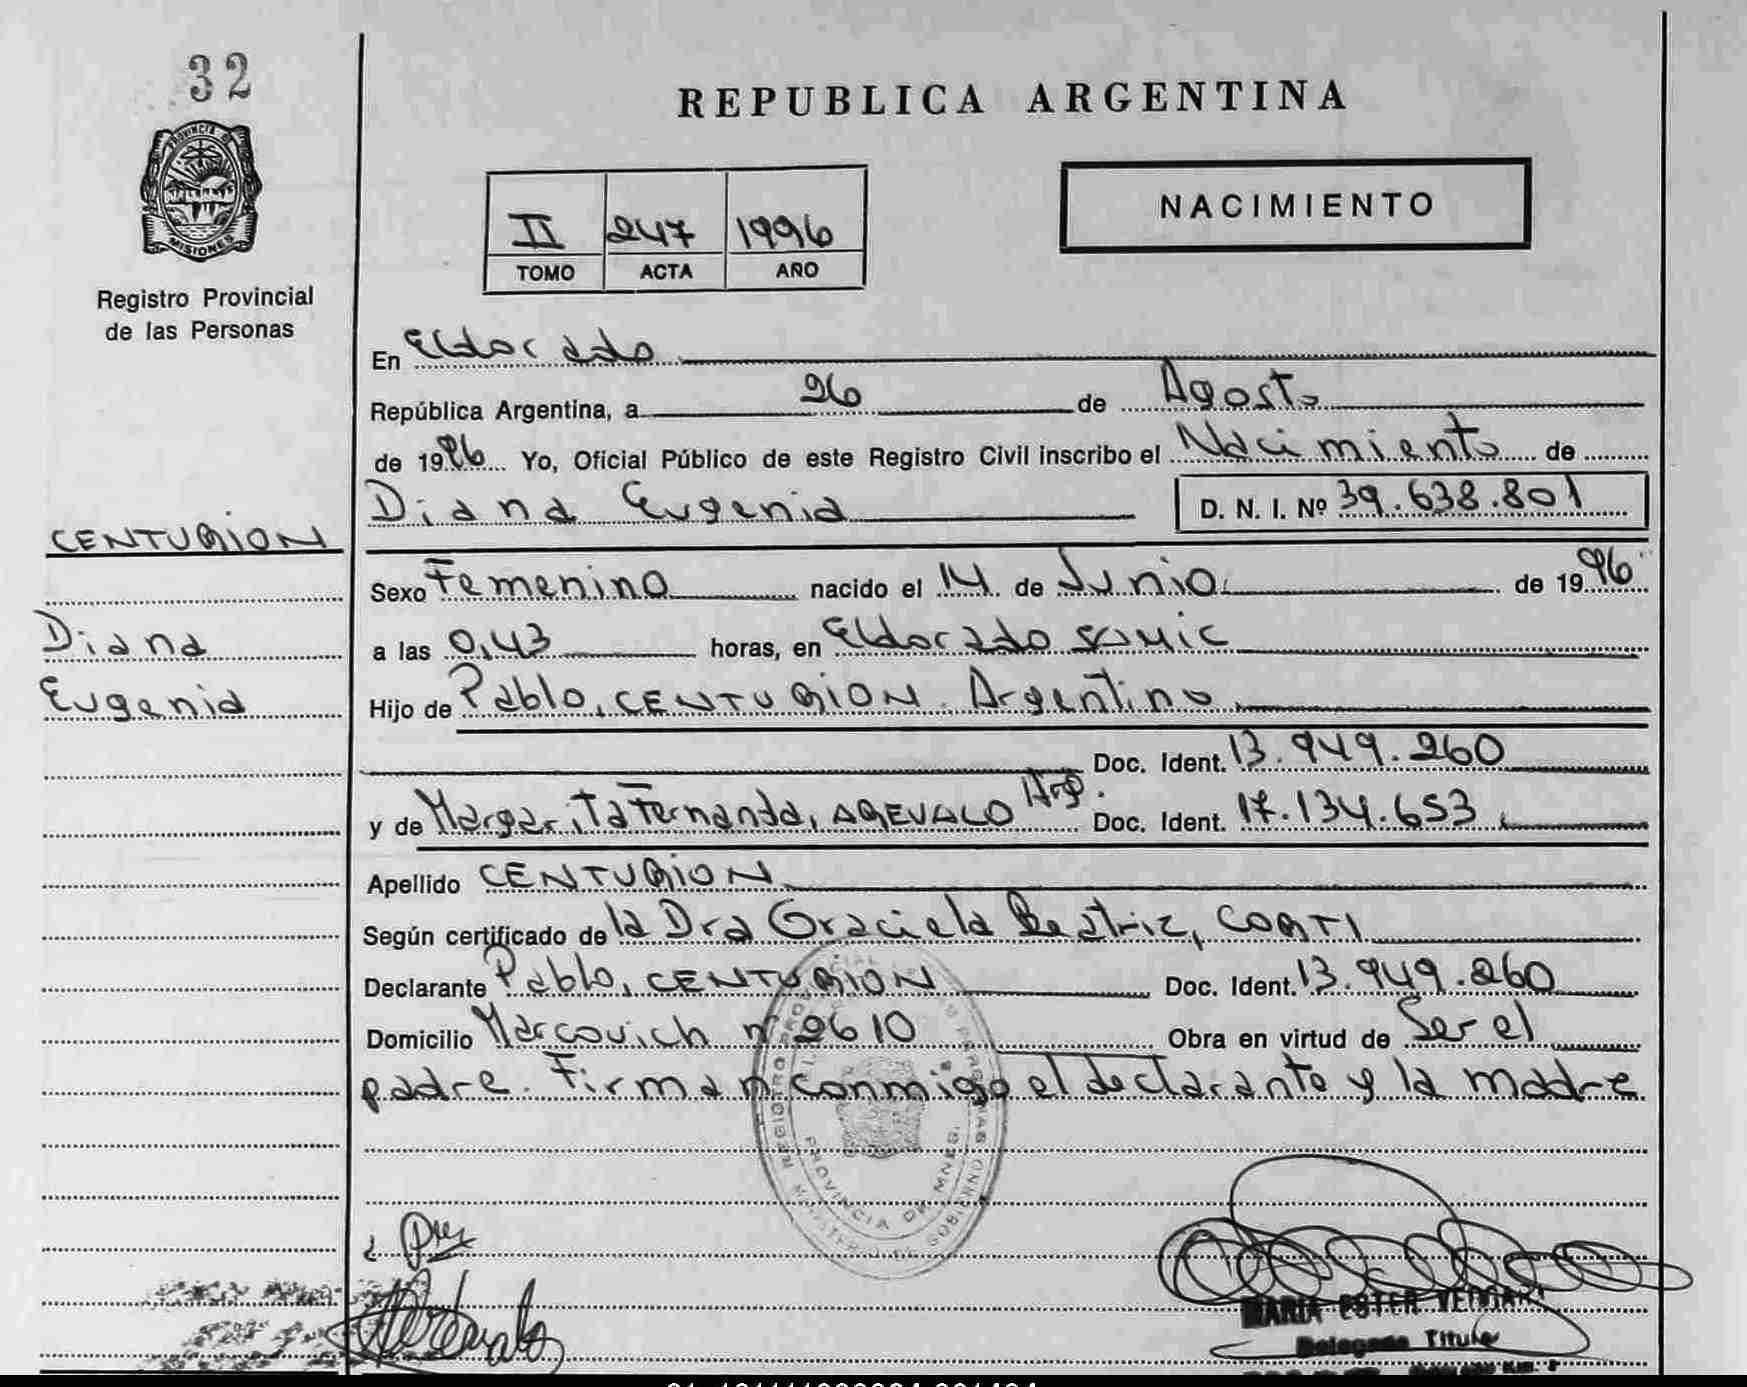 32
PROVINCIA DE
MISIONES
Registro Provincial
de las Personas
CENTURION
Diana
Eugenia
REPUBLICA ARGENTINA
II 247 1996
TOMO ACTA AÑO
NACIMIENTO
En Eldorado
República Argentina, a 26 de Agosto
de 1996 Yo, Oficial Público de este Registro Civil inscribo el Nacimiento de
Diana Eugenia D. N. I. Nº 39.638.801
Sexo Femenino nacido el 14 de Junio de 1996
a las 0,43 horas, en Eldorado
Hijo de Pablo, CENTURION. Argentino
Doc. Ident. 13.949.260
y de Margarita Fernanda, AREVALO Arg. Doc. Ident. 17.134.653
Apellido CENTURION
Según certificado de la Dra Graciela Beatriz, CORTI
Declarante Pablo, CENTURION Doc. Ident. 13.949.260
Domicilio Marcovich nº 2610 Obra en virtud de Ser el
padre. Firman conmigo el declarante y la madre
PROVINCIA DE MNES.
MINISTERIO DE GOBIERNO
MARIA ESTER
Delegada Titular